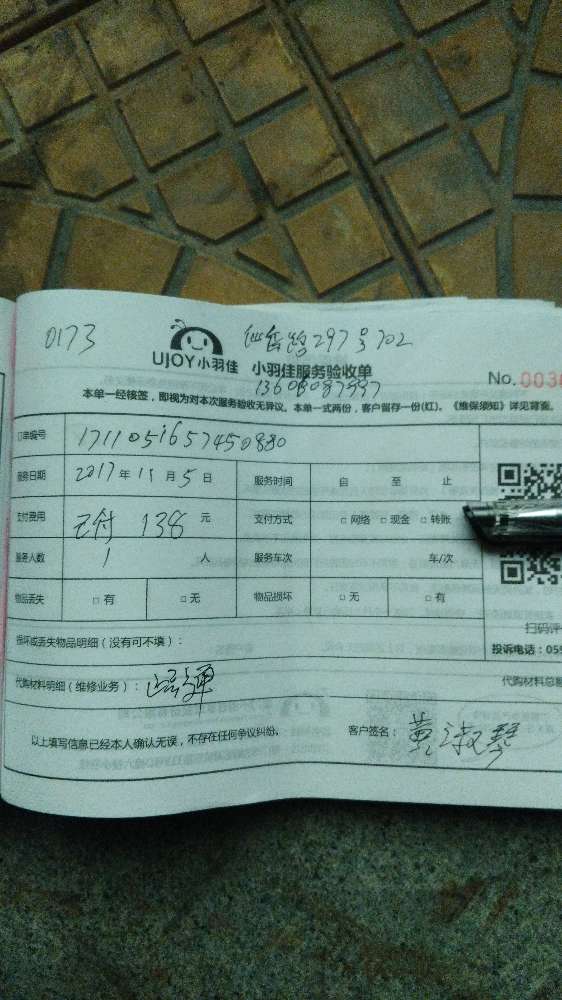 0173
仙岳路297号702
UJOY小羽佳 小羽佳服务验收单
No. 003
13608087997
本单一经核签，即视为对本次服务验收无异议。本单一式两份，客户留存一份(红)。《维保须知》详见背面。
订单编号 1711051657450880
服务日期 2017年11月5日 服务时间 自 至 止
支付费用 已付 138 元 支付方式 □网络 □现金 □转账
服务人数 1 人 服务车次 车/次
物品丢失 □有 □无 物品损坏 □无 □有
扫码评
损坏或丢失物品明细（没有可不填）：
投诉电话：059
代购材料明细（维修业务）： 代购材料总额
以上填写信息已经本人确认无误，不存在任何争议纠纷。 客户签名： 黄淑琴